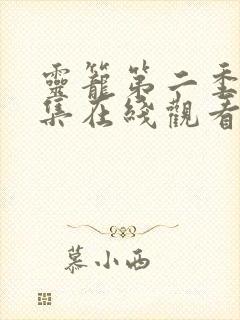 靈籠第二季
集在綫觀看
慕小西